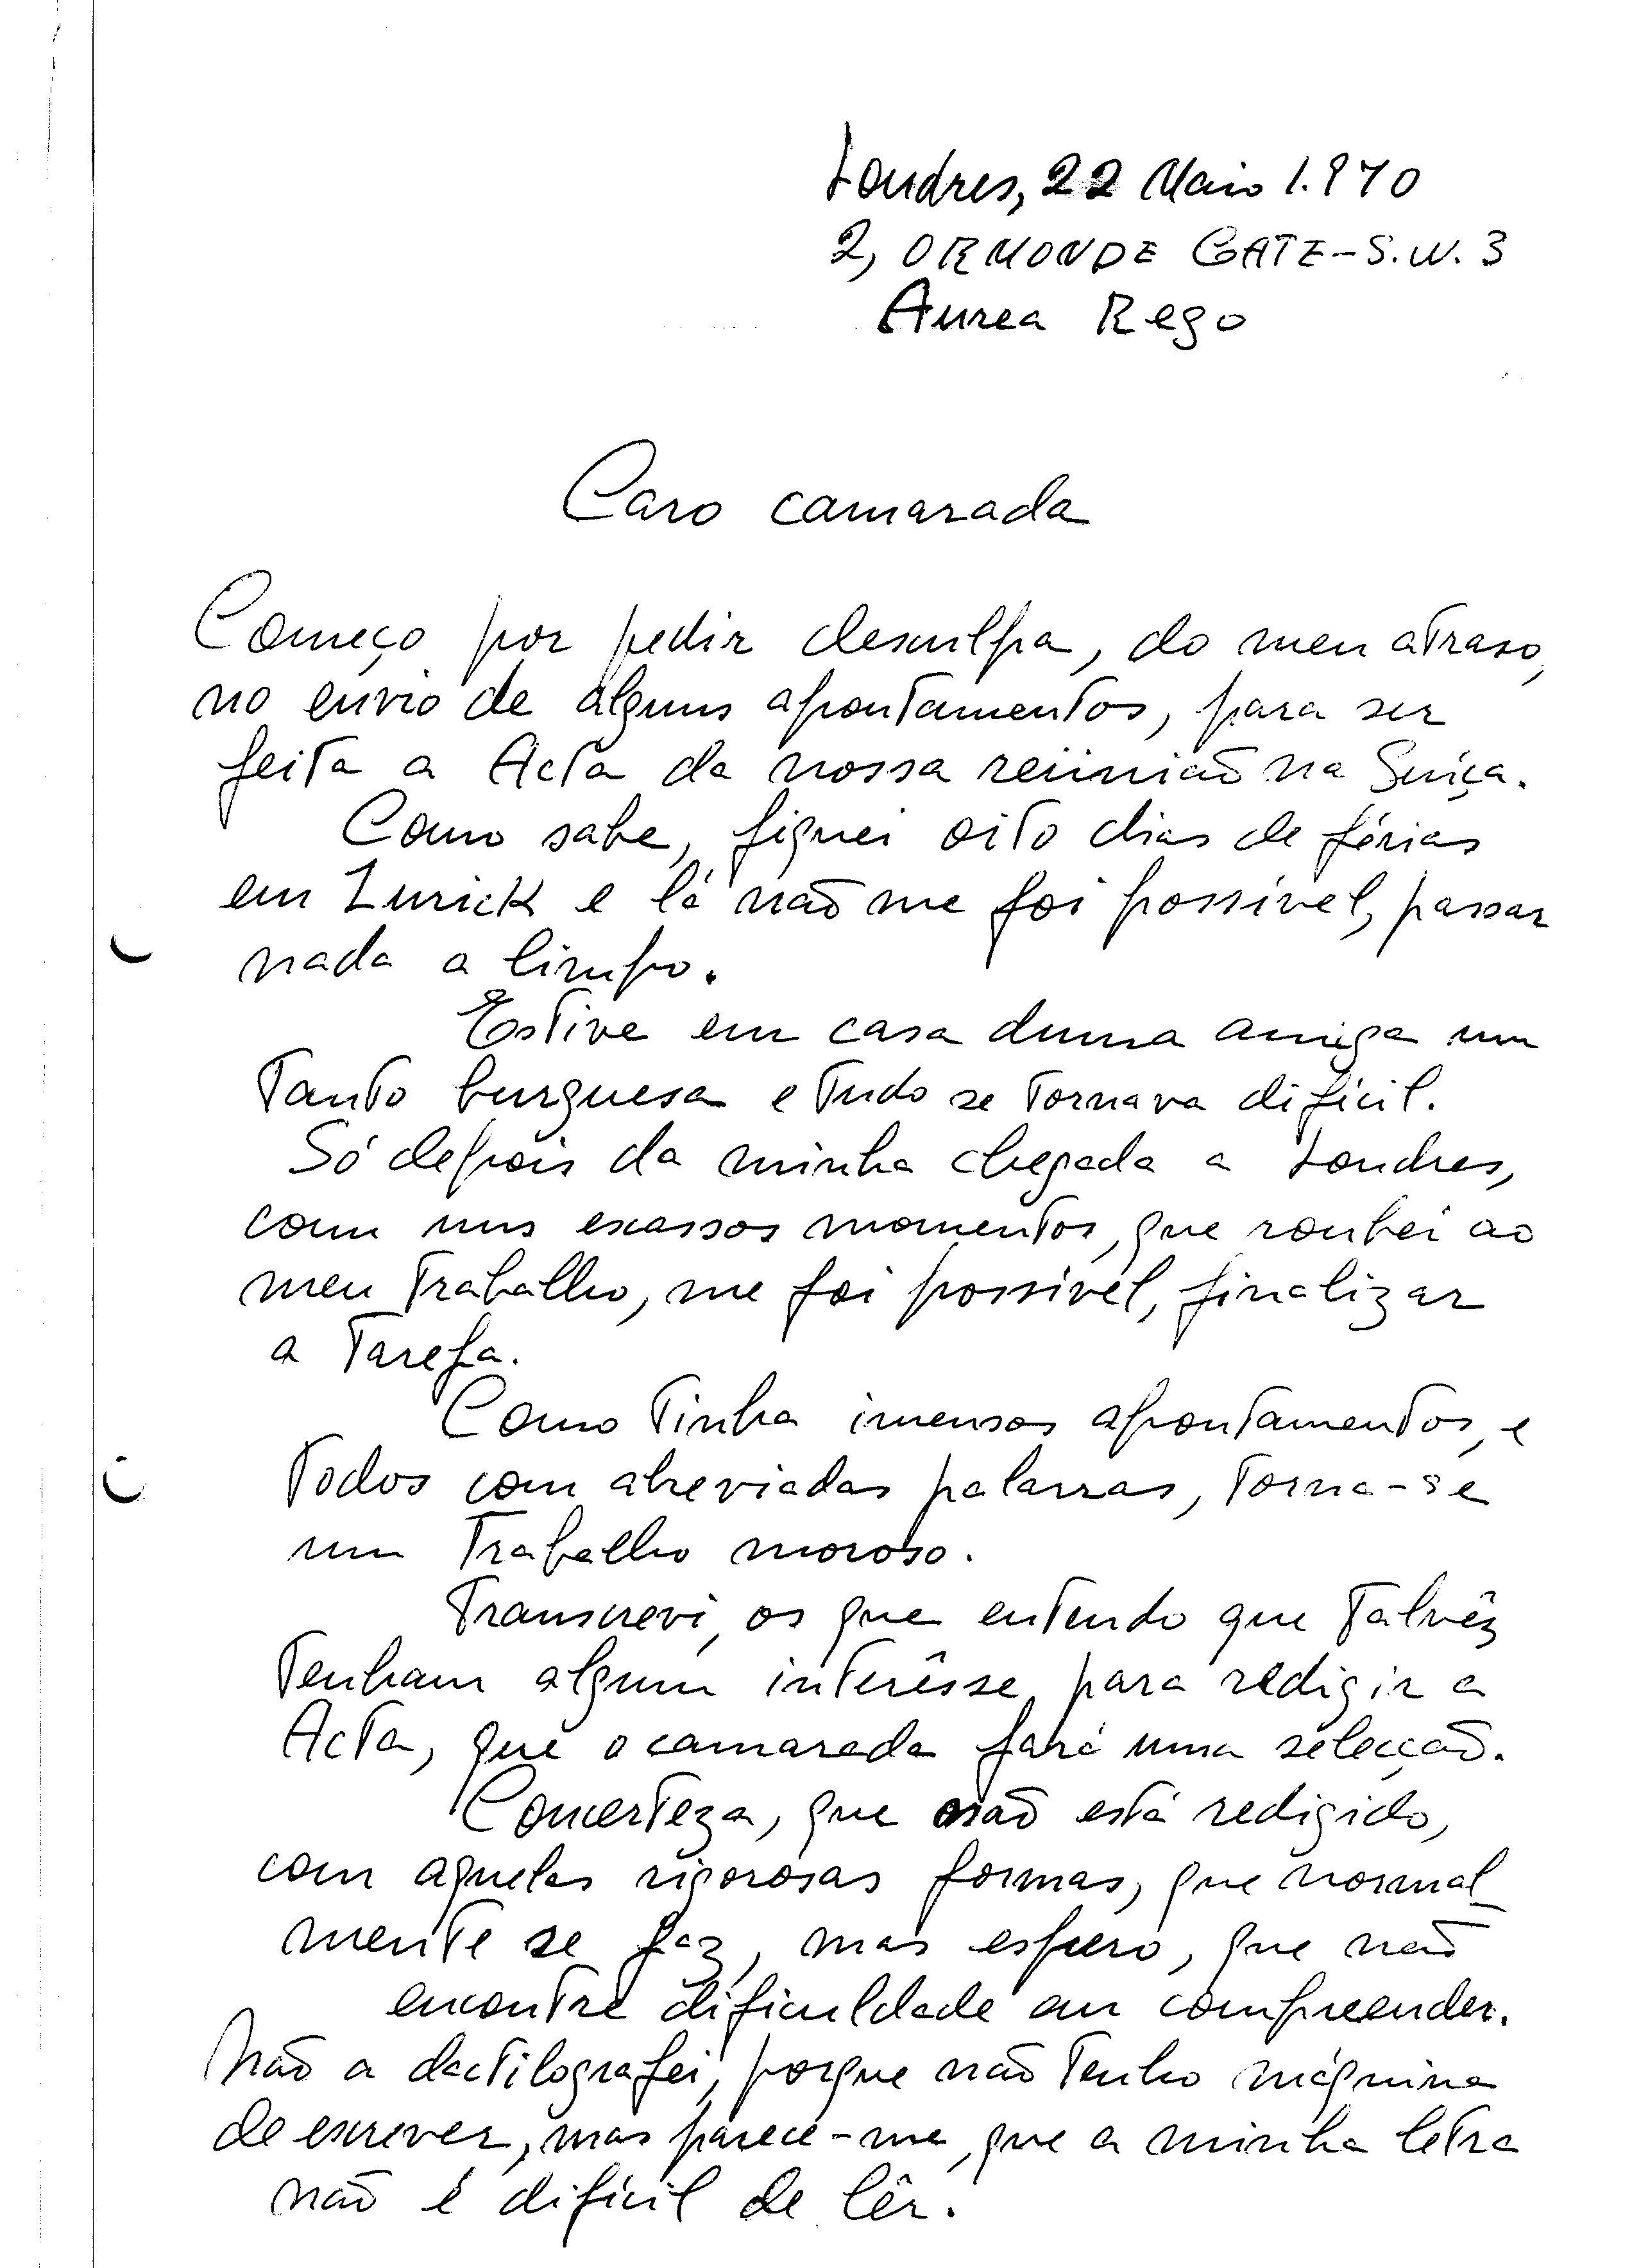 Londres, 22 Maio 1.970
2, ORMONDE GATE - S.W. 3
Aurea Rego
Caro camarada
Começo por pedir desculpa, do meu atraso,
no envio de alguns apontamentos, para ser
feita a Acta da nossa reünião na Suiça.
Como sabe, fiquei oito dias de férias
em Zurick e lá não me foi possível, passar
nada a limpo.
Estive em casa duma amiga um
tanto burguesa e tudo se tornava difícil.
Só depois da minha chegada a Londres,
com uns escassos momentos, que roubei ao
meu trabalho, me foi possível, finalizar
a tarefa.
Como tinha imensos apontamentos, e
todos com abreviadas palavras, torna-se
um trabalho moroso.
Transcrevi, os que entendo que talvêz
tenham algum interêsse, para redigir a
Acta, que o camarada fará uma selecção.
Comcerteza, que não está redigido,
com aquelas rigorosas formas, que normal_
mente se faz, mas espero, que não
encontre dificuldade em compreender.
Não a dactilografei, porque não tenho máquina
de escrever, mas parece-me, que a minha letra
não é difícil de lêr.